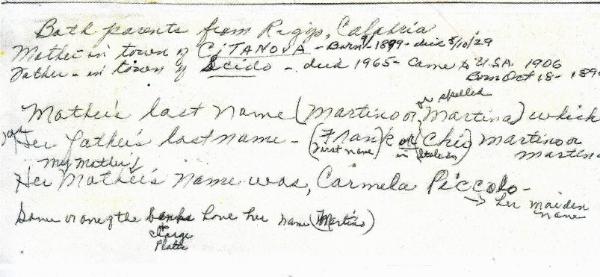 Both parents from Regio, Calabria
Mother in town of CiTANOVA - Born 1899 - died 5/10/29
Father - in town of Scido - died 1965 - Came to USA. 1906
Born Oct 18 - 189
or spelled
Mother's last name (Martino or Martina) which
Her father's last name - (Frank or Chic) Martino or
first name in Italian Martina
My Mother's
Her Mother's name was, Carmela Piccolo -
→ her maiden
name
Some or one of the banks have her name (Martino)
+
Large
Plate